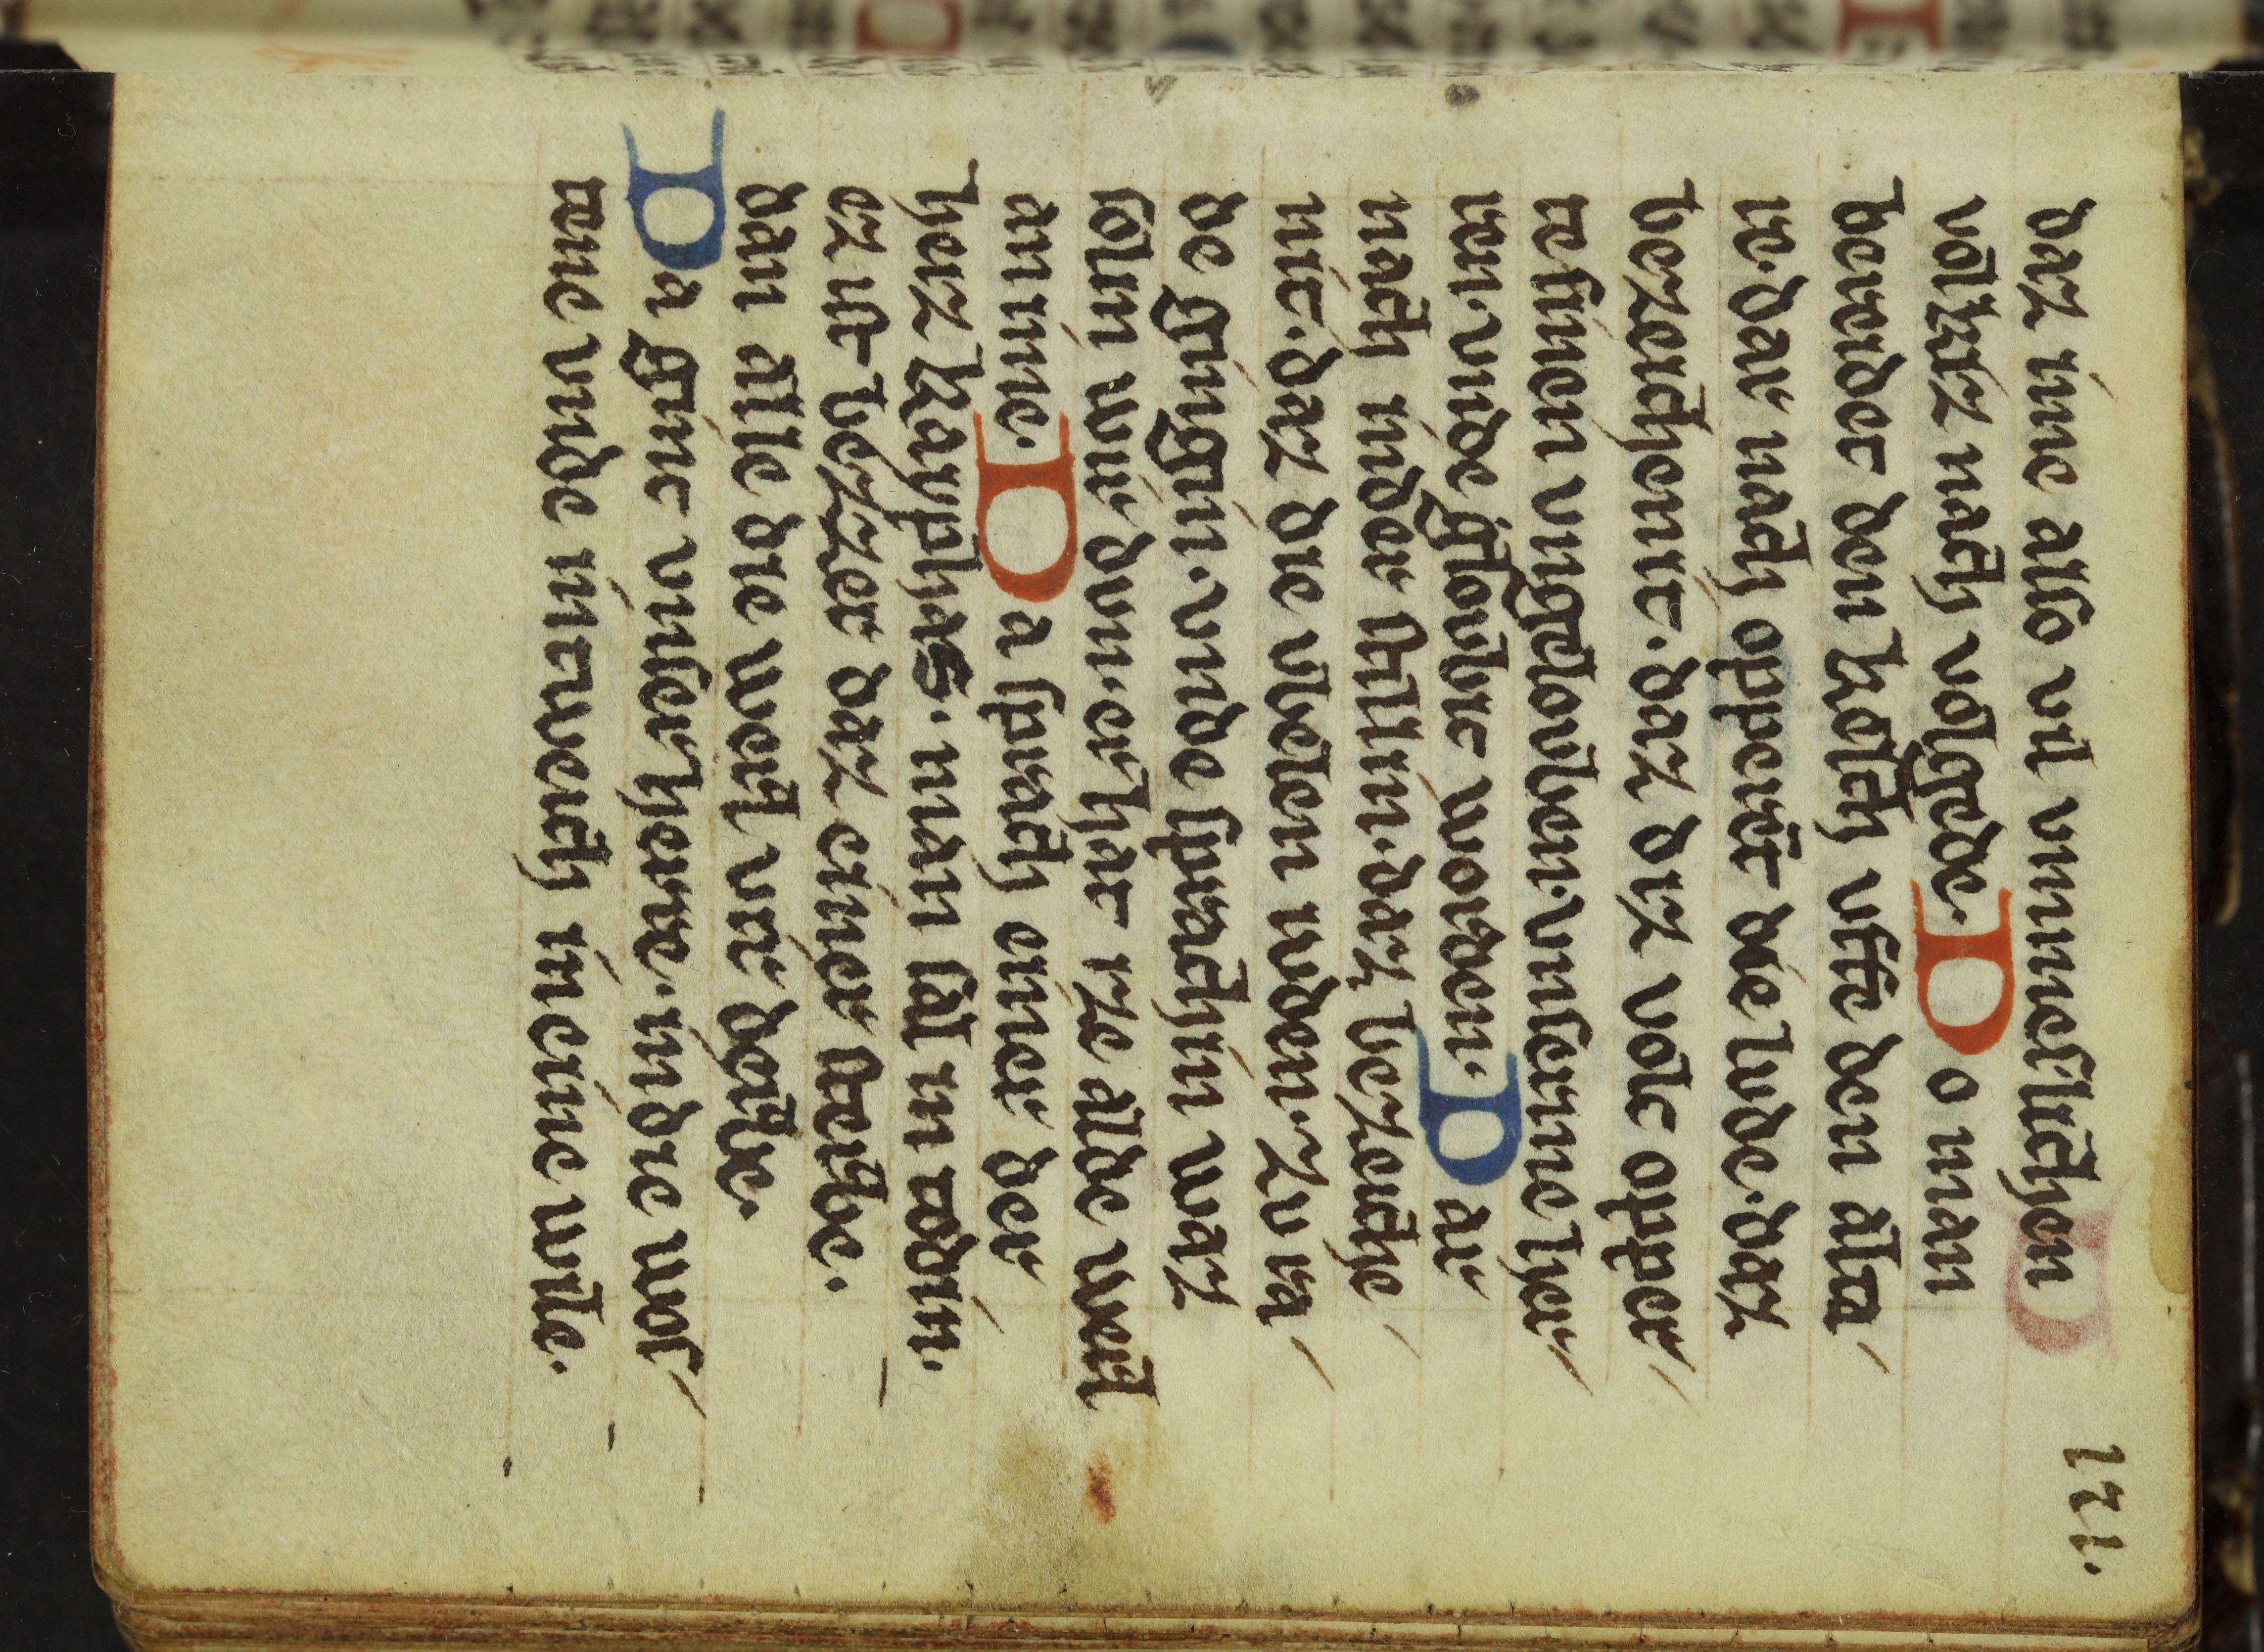 121.
daz ime also vil vnmeslichen
volkz nach volgede. Do man
beneider den kelch vffe den alta/
re. dar nach oppeirt derbede. daz
bezeichenit. daz diz volc opper/
te sinen vngelovben. vnserme her/
ren. vnde gelovbic worden. Dar
nach inder stillin. daz bezeiche/
nit. daz die vbelen iuden. zv ra/
de gingin. vnde sprachin waz
solin wir dun. er hat rze allde werlt
an ime. Da sprach einer der
henz kayphas. man sal in dodin.
ez ist bezzer daz einer sterbe.
dan alle die werlt virderbe.
Da ginc vnser herre. indie wos/
tene vnde intweich ineine wile.